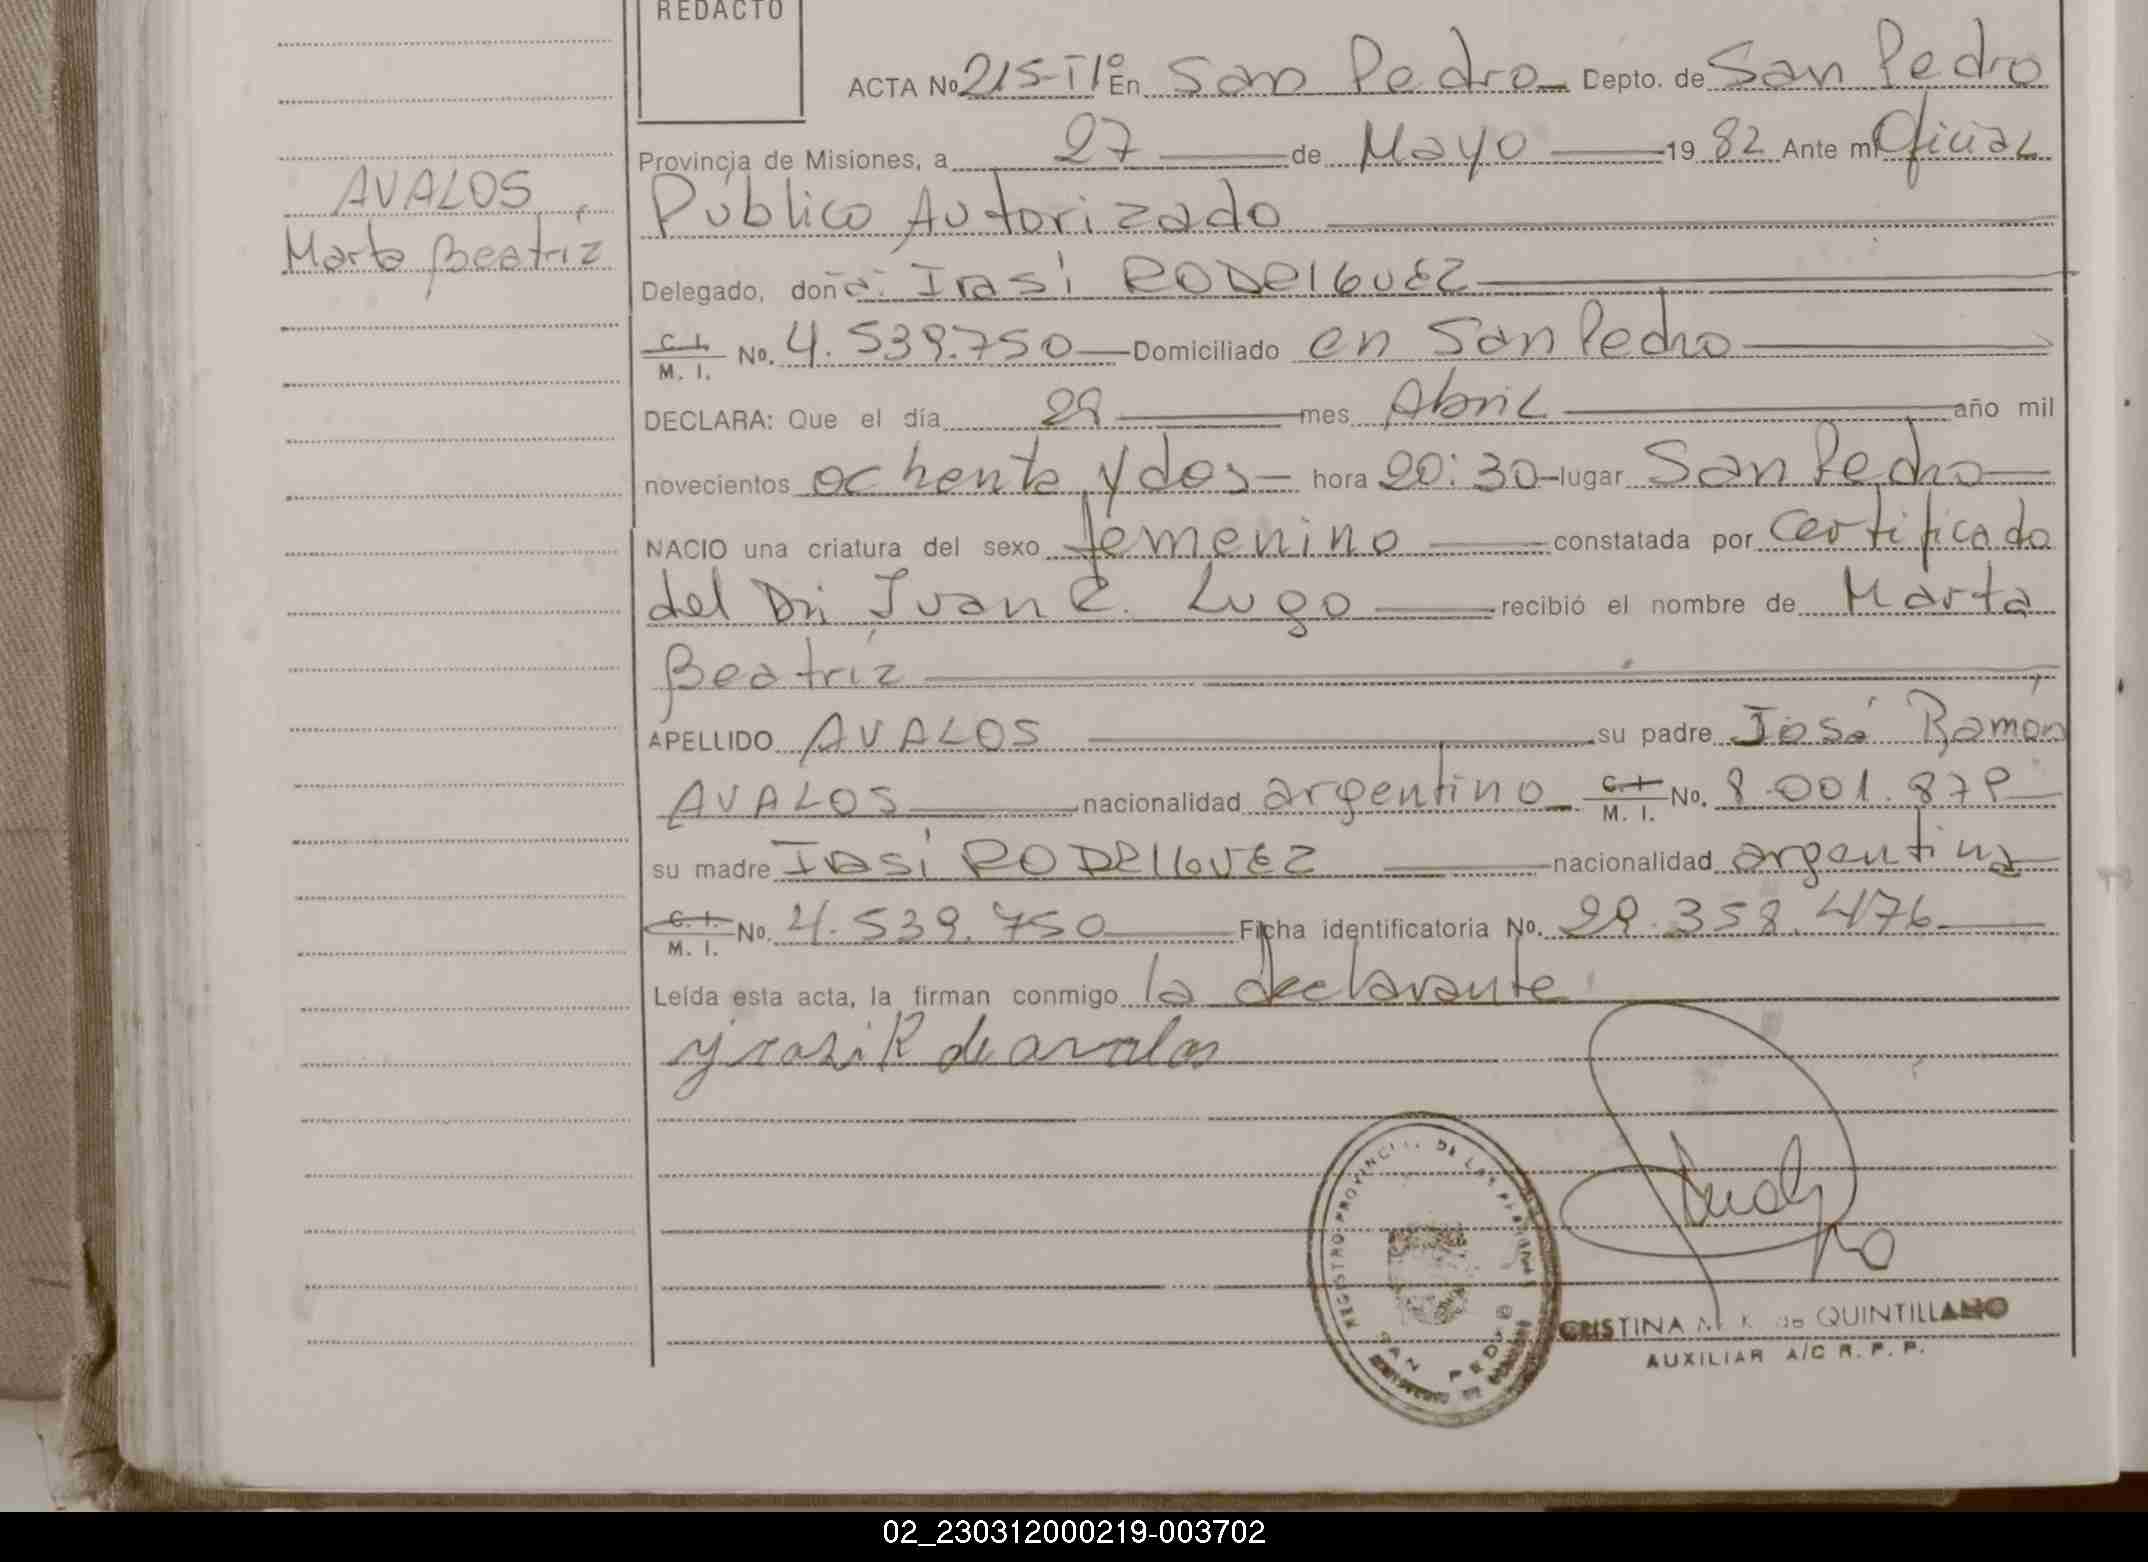 REDACTO
ACTA No 215-T1º En San Pedro Depto. de San Pedro
Provincia de Misiones, a 27 de Mayo 19 82 Ante mi Oficial
Público Autorizado
AVALOS
Marta Beatríz
Delegado, doña: Irasí RODRIGUEZ
C. I.
M. I. No. 4.539.750 Domiciliado en San Pedro
DECLARA: Que el día 29 mes Abril año mil
novecientos ochenta y dos hora 20:30 lugar San Pedro
NACIO una criatura del sexo femenino constatada por certificado
del Dr. Juan C. Lugo recibió el nombre de Marta
Beatríz
APELLIDO AVALOS su padre José Ramón
AVALOS nacionalidad argentino C. I. M. I. No. 8.001.879
su madre Irasí RODRIGUEZ nacionalidad argentina
C. I.
M. I. No. 4.539.750 Ficha identificatoria No. 29.358.476
Leída esta acta, la firman conmigo la declarante
yrasi R de avalos
REGISTRO PROVINCIAL DE LAS PERSONAS
SAN PEDRO
CRISTINA M. K. de QUINTILLANO
AUXILIAR A/C R. P. P.
02_230312000219-003702